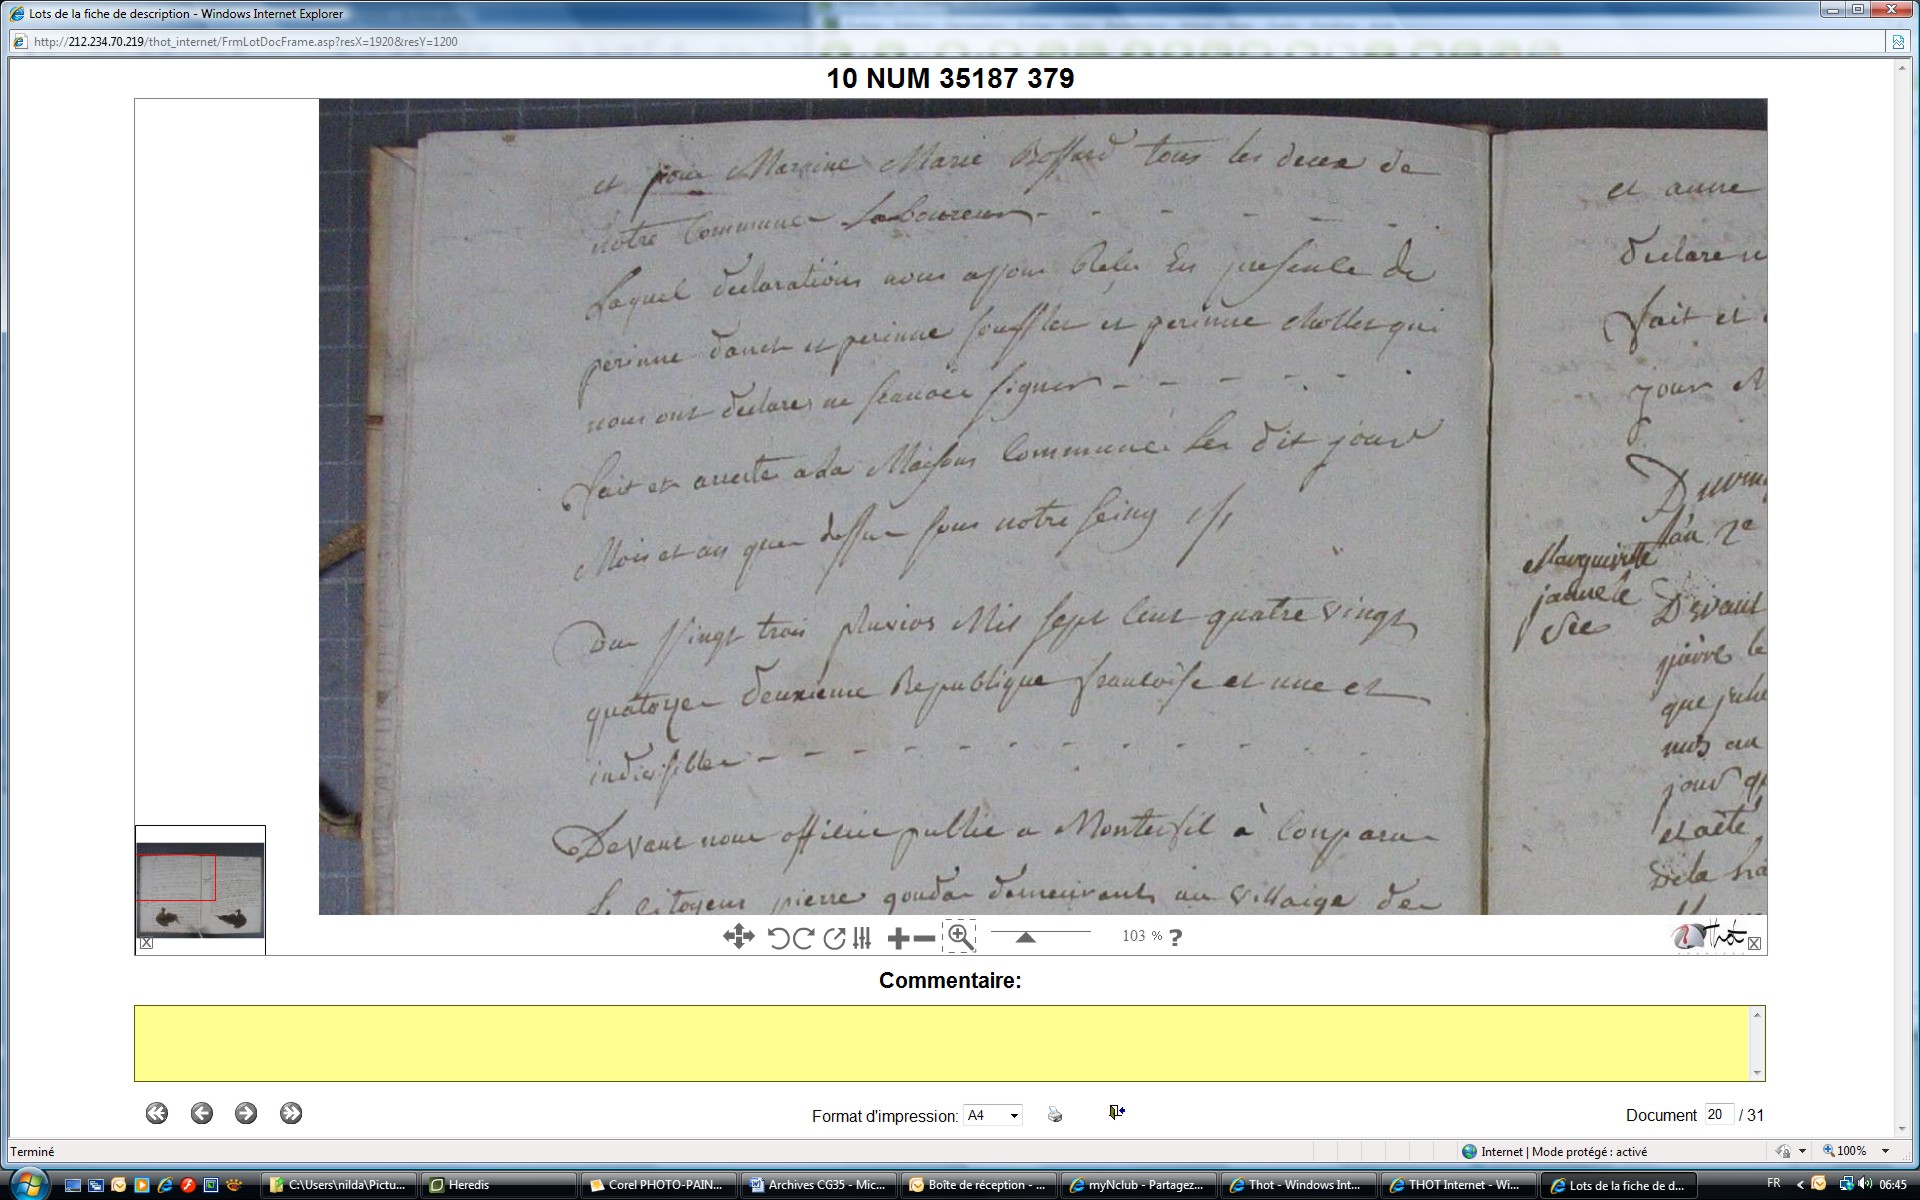 Lots de la fiche de description - Windows Internet Explorer
http://212.234.70.219/thot_internet/FrmLotDocFrame.asp?resX=1920&resY=1200
10 NUM 35187 379
et pour Marinne Marie Bossard tous les deux de
notre Commune Laboureur
Laquel declarations nous avons Relu En presence de
perinne et perinne et perinne qui
nous ont declares ne scavoir signer
fait et arreté a la Maison Commune Les dit jour
Mois et an que dessus sous notre seing
Du Vingt trois pluvios Mil sept Cent quatre Vingt
quatorze deuxieme Republique francoise et une et
indivisible
Devant nous officier public a Monterfil à Comparu
Le Citoyens pierre demeurant au Village de
et anne
declare n
fait et
jour
Marguiritte
jannele
Née
l'an 2e
Devant
pierre le
que
nus au
jour
et
de la
103 %
?
Thot
Commentaire:
Format d'impression: A4
Document 20 / 31
Terminé
Internet | Mode protégé : activé
100%
C:\Users\nilda\Pictu...
Heredis
Corel PHOTO-PAIN...
Archives CG35 - Mic...
Boîte de réception - ...
myNclub - Partagez...
Thot - Windows Int...
THOT Internet - Wi...
Lots de la fiche de d...
FR
06:45